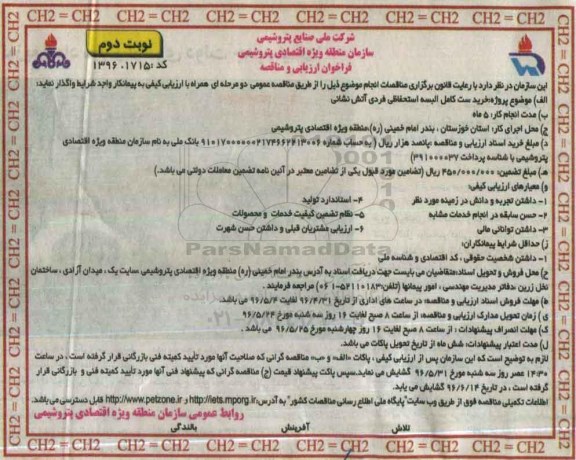 CH2 = CH2 = CH2 = CH2 = CH2 = CH2 = CH2 = CH2
شرکت ملی صنایع پتروشیمی
سازمان منطقه ویژه اقتصادی پتروشیمی
فراخوان ارزیابی و مناقصه
نوبت دوم
کد: ۱۳۹۶.۱۷۱۵
این سازمان در نظر دارد با رعایت قانون برگزاری مناقصات انجام موضوع ذیل را از طریق مناقصه عمومی دو مرحله ای همراه با ارزیابی کیفی به پیمانکار واجد شرایط واگذار نماید:
الف) موضوع پروژه: خرید ست کامل البسه استحفاظی فردی آتش نشانی
ب) مدت انجام کار: ۵ ماه
ج) محل اجرای کار: استان خوزستان ، بندر امام خمینی (ره)، منطقه ویژه اقتصادی پتروشیمی
د) مبلغ خرید اسناد ارزیابی و مناقصه: پانصد هزار ریال ( به حساب شماره بانک ملی به نام سازمان منطقه ویژه اقتصادی
پتروشیمی با شناسه پرداخت ۳۹۱۰۰۰۰۳۷)
هـ) مبلغ تضمین: ۴۵۰/۰۰۰/۰۰۰ ریال (تضامین مورد قبول یکی از تضامین معتبر در آئین نامه تضمین معاملات دولتی می باشد.)
و) معیارهای ارزیابی کیفی:
۱- داشتن تجربه و دانش در زمینه مورد نظر
۴- استاندارد تولید
۲- حسن سابقه در انجام خدمات مشابه
۵- نظام تضمین کیفیت خدمات و محصولات
۳- داشتن توانائی مالی
۶- ارزیابی مشتریان قبلی و داشتن حسن شهرت
ز) حداقل شرایط پیمانکاران:
۱- داشتن شخصیت حقوقی ، کد اقتصادی و شناسه ملی
ح) محل فروش و تحویل اسناد: متقاضیان می بایست جهت دریافت اسناد به آدرس بندر امام خمینی (ره) منطقه ویژه اقتصادی پتروشیمی، سایت یک ، میدان آزادی ، ساختمان
نخل زرین ،دفاتر مدیریت مهندسی ، امور پیمانها (تلفن: ۵۲۱۱۰۱۸۳-۰۶۱) مراجعه فرمایند .
ط) مهلت فروش اسناد ارزیابی و مناقصه: در ساعت های اداری از تاریخ ۹۶/۴/۳۱ لغایت ۹۶/۵/۴ می باشد.
ی) زمان تحویل مدارک ارزیابی و مناقصه: از ساعت ۸ صبح لغایت ۱۶ روز سه شنبه مورخ ۹۶/۵/۲۴
ک) مهلت انصراف پیشنهادات : از ساعت ۸ صبح لغایت ۱۶ روز چهارشنبه مورخ ۹۶/۵/۲۵ می باشد .
ل) مدت اعتبار پیشنهادات: شش ماه از تاریخ تحویل پاکات می باشد.
لازم به توضیح است که این سازمان پس از ارزیابی کیفی ، پاکات «الف» و «ب» مناقصه گرانی که صلاحیت آنها مورد تأیید کمیته فنی بازرگانی قرار گرفته است ، در ساعت
۱۴:۳۰ عصر روز سه شنبه مورخ ۹۶/۵/۳۱ گشایش می نماید. سپس پاکت پیشنهاد قیمت (ج) مناقصه گرانی که پیشنهاد فنی آنها مورد تأیید کمیته فنی و بازرگانی قرار
گرفته است ، در تاریخ ۹۶/۶/۱۴ گشایش می یابد.
اطلاعات تکمیلی مناقصه فوق از طریق وب سایت "پایگاه ملی اطلاع رسانی مناقصات کشور" به آدرس http://iets.mporg.ir و http://www.petzone.ir قابل دسترسی می باشد.
روابط عمومی سازمان منطقه ویژه اقتصادی پتروشیمی
تلاش آفرینش بالندگی
ParsNamadData
CH2 = CH2 = CH2 = CH2 = CH2 = CH2 = CH2 = CH2